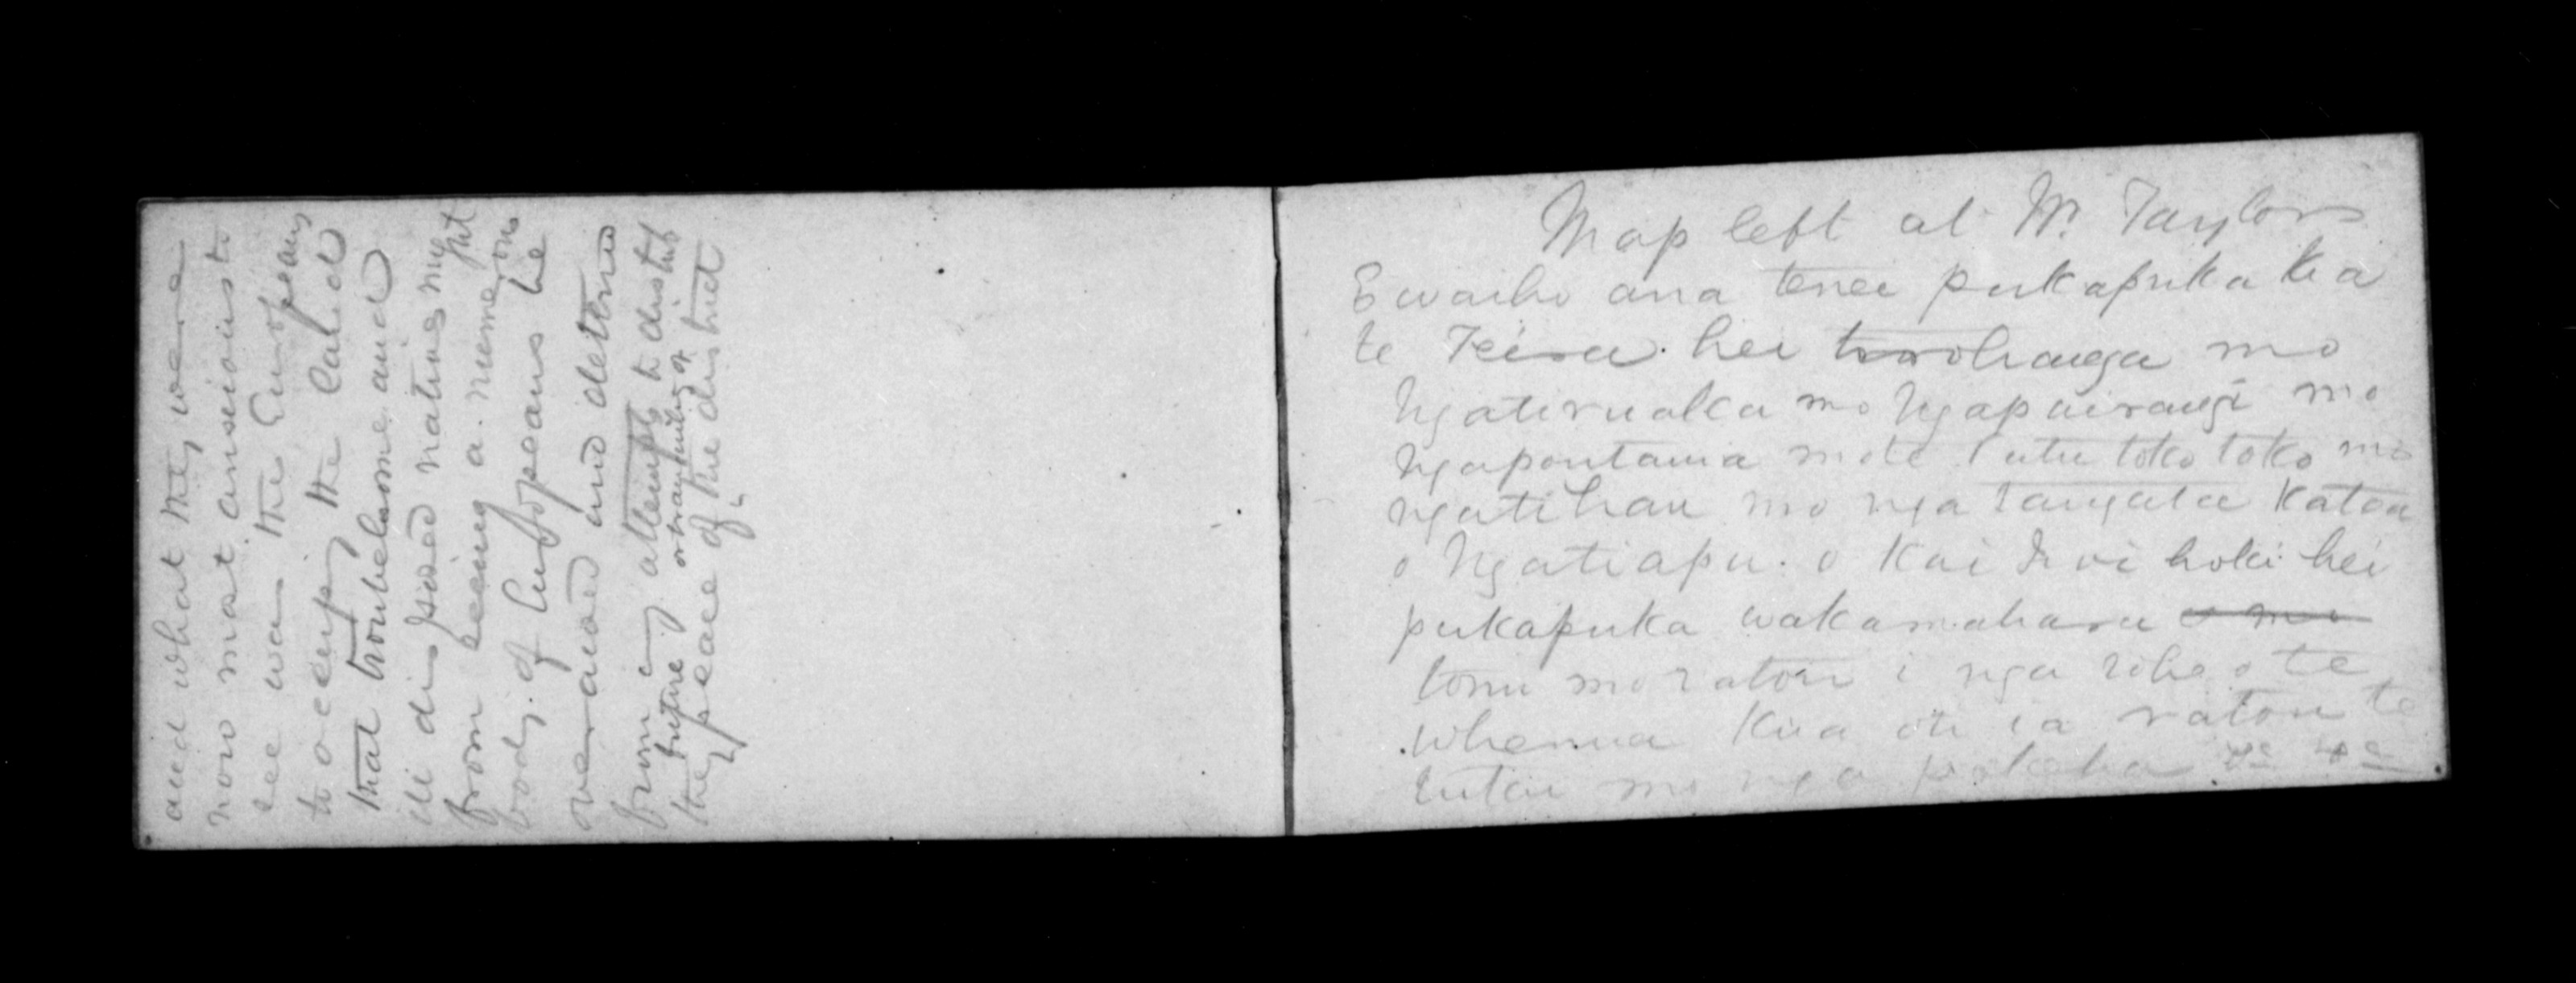 and what they were
now most anxious to
see was the Europeans
to occupy the land
that troublesome and
ill disposed natives might
from seeing a numerous
body of Europeans be
overawed and deterred
from any attempt to disturb
future or tranquility of
the peace of the district
Map left at Mr. Taylors
E waiho ana tenei pukapuka ki a
te Teira hei tirohanga mo
Ngatiruaka mo Ngapairangi mo
Ngapoutama mo te Patutokotoko mo
ngatihau mo nga tangata katoa
o Ngatiapa o Kai Iwi hoki hei
pukapuka wakamahara o mo
tonu mo ratou i nga rohe o te
whenua kua oti ia ratou te
tukua mo nga pakeha